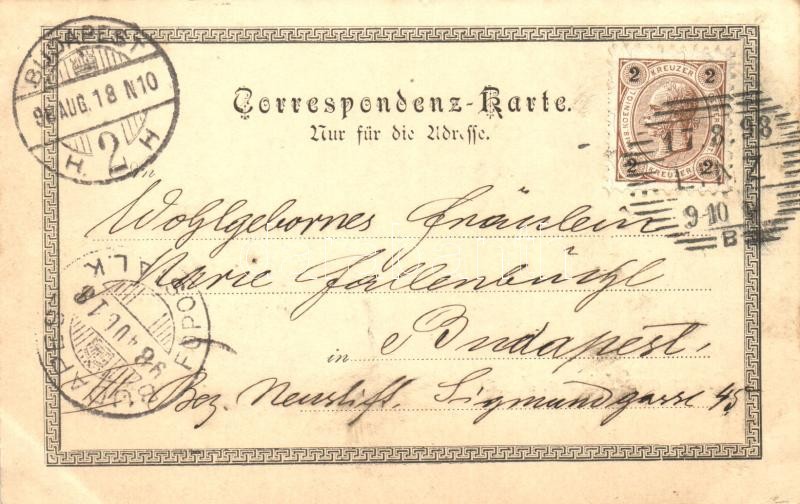 BUDAPEST
98 AUG. 18 N10
H. 2 H
Correspondenz-Karte.
Nur für die Adresse.
2 KREUZER 2
2 KREUZER 2
17. 8. 98
9-10
B
An
Wohlgebornes Fräulein
Marie Fallenbüchl
in Budapest,
Bez. Neustift. Sigmundgasse 45